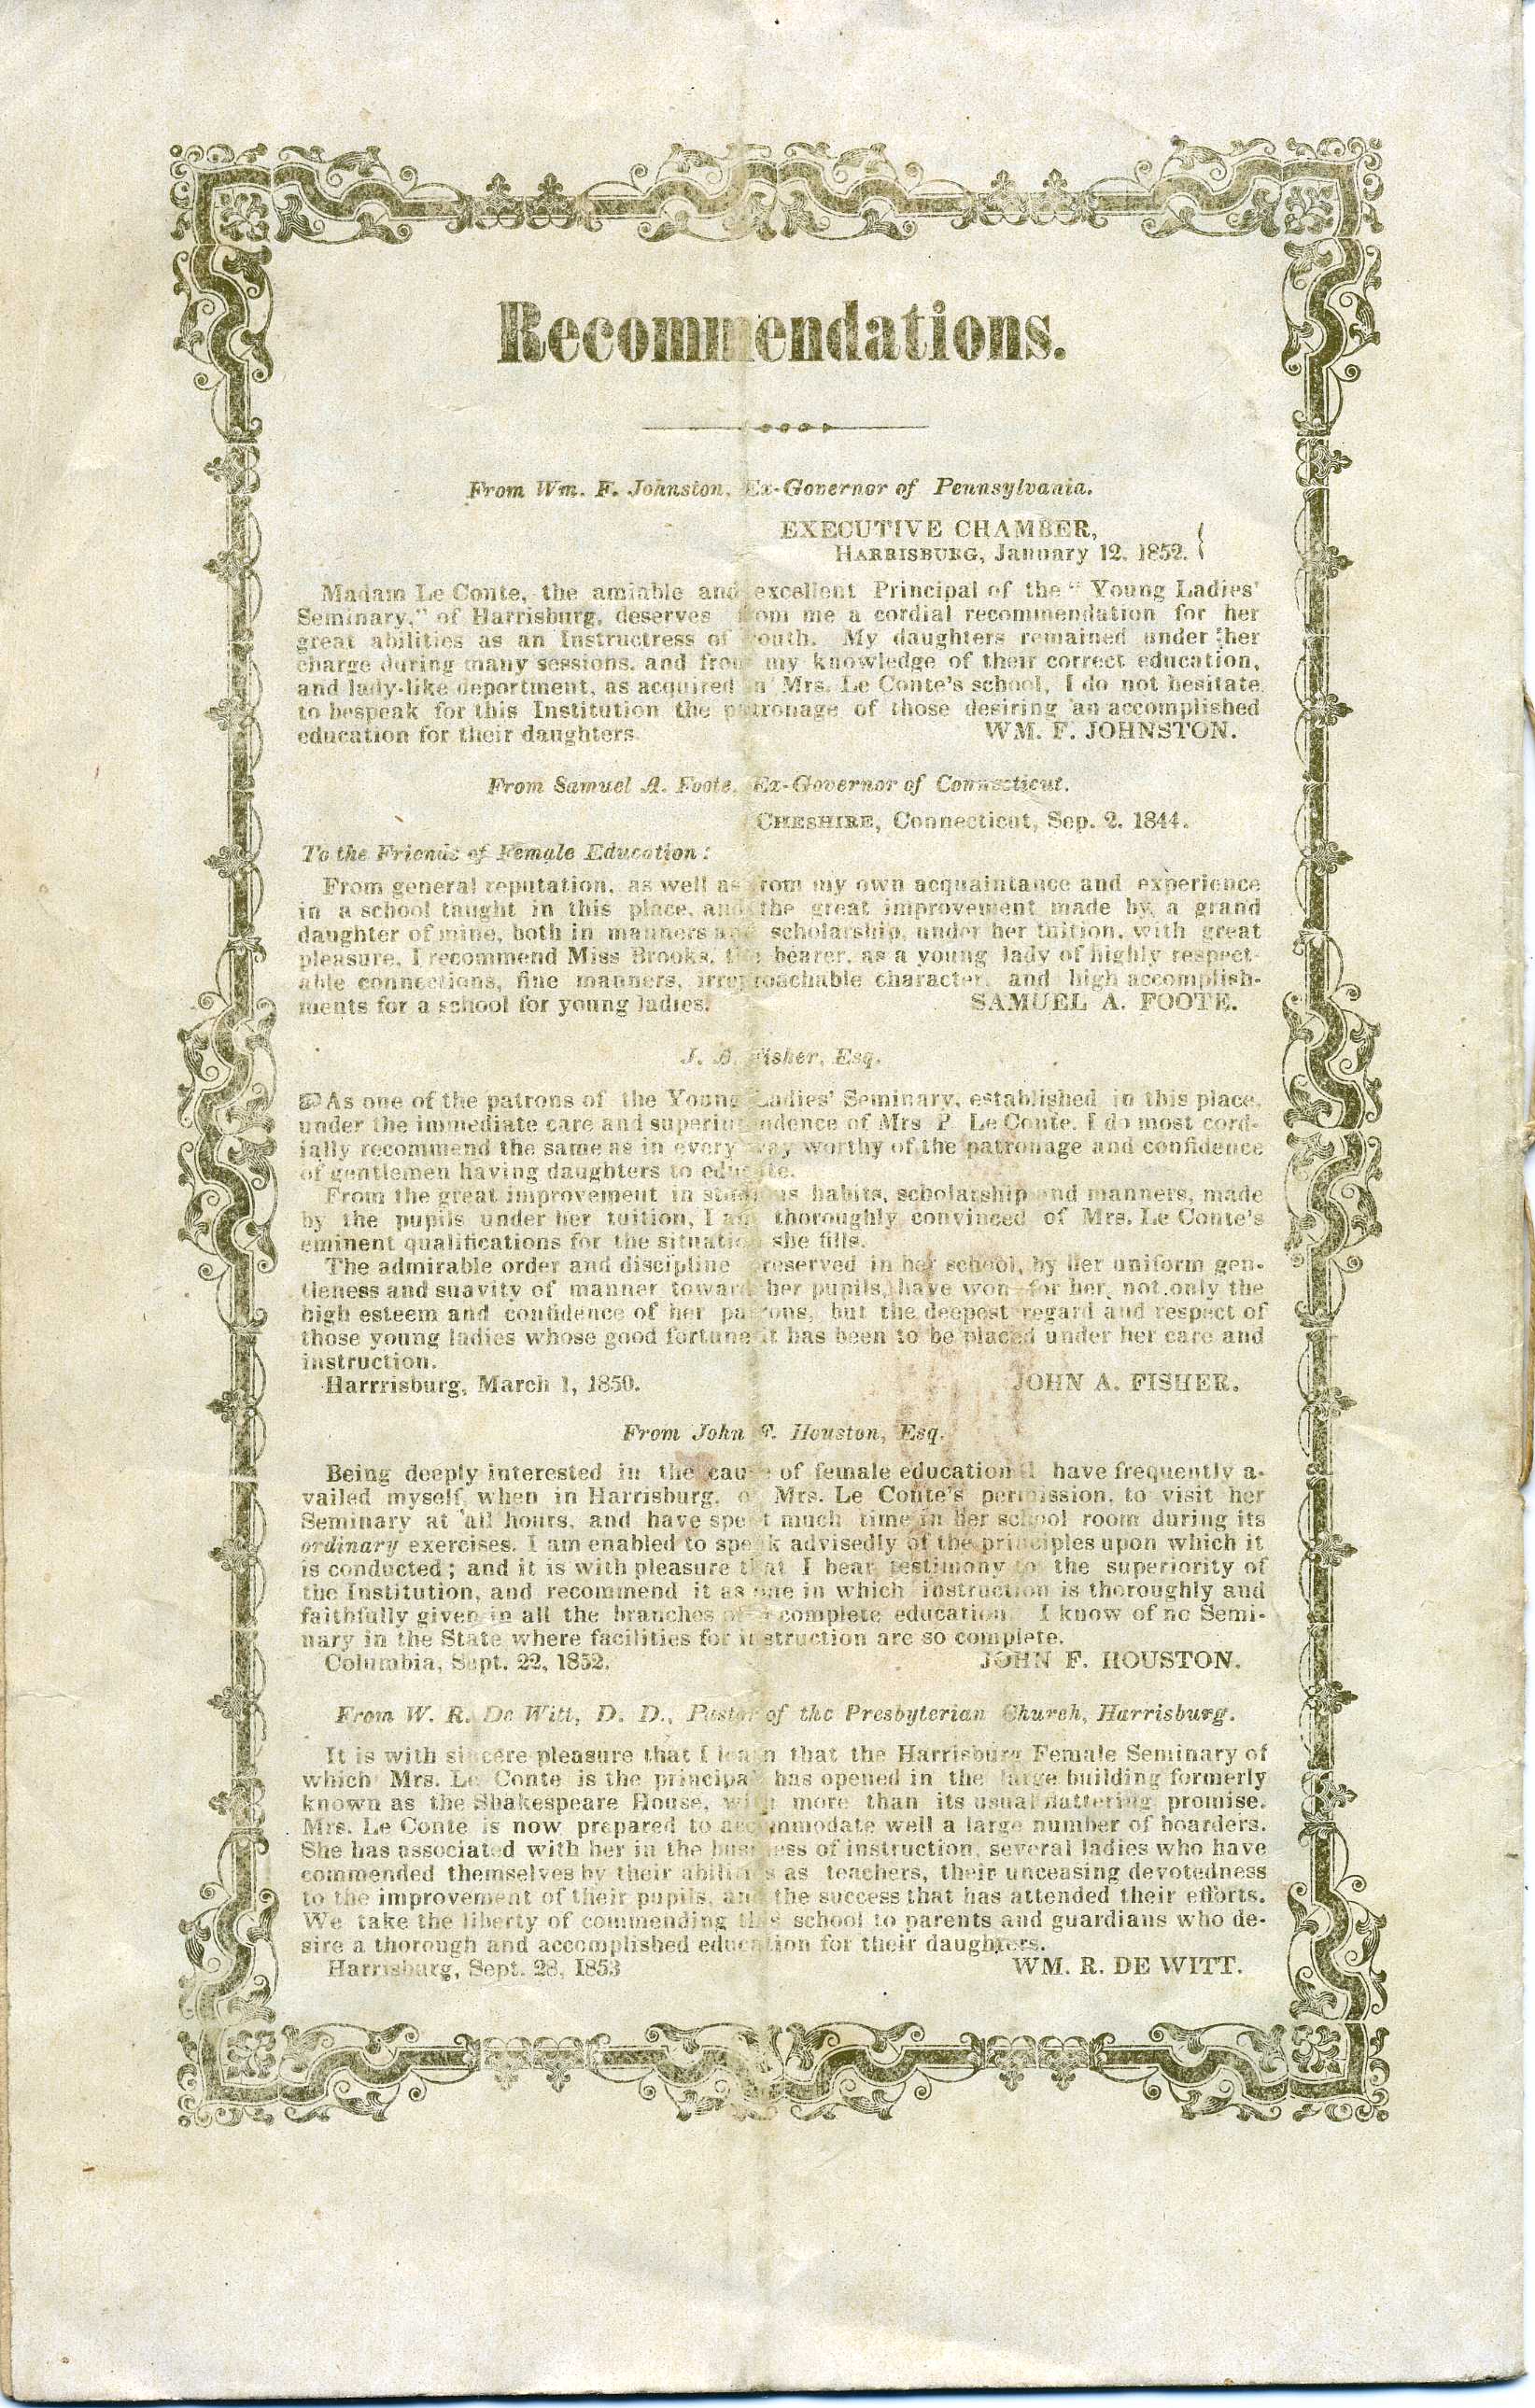 Recommendations.
From Wm. F. Johnston, Ex-Governor of Pennsylvania.
EXECUTIVE CHAMBER,
HARRISBURG, January 12, 1852. }
Madam Le Conte, the amiable and excellent Principal of the " Young Ladies'
Seminary," of Harrisburg, deserves from me a cordial recommendation for her
great abilities as an Instructress of youth. My daughters remained under her
charge during many sessions, and from my knowledge of their correct education,
and lady-like deportment, as acquired in Mrs. Le Conte's school, I do not hesitate
to bespeak for this Institution the patronage of those desiring an accomplished
education for their daughters. WM. F. JOHNSTON.
From Samuel A. Foote, Ex-Governor of Connecticut.
CHESHIRE, Connecticut, Sep. 2, 1844.
To the Friends of Female Education :
From general reputation, as well as from my own acquaintance and experience
in a school taught in this place, and the great improvement made by a grand
daughter of mine, both in manners and scholarship, under her tuition, with great
pleasure, I recommend Miss Brooks, the bearer, as a young lady of highly respect-
able connections, fine manners, irreproachable character, and high accomplish-
ments for a school for young ladies. SAMUEL A. FOOTE.
J. A. Fisher, Esq.
☞As one of the patrons of the Young Ladies' Seminary, established in this place,
under the immediate care and superintendence of Mrs P. Le Conte, I do most cord-
ially recommend the same as in every way worthy of the patronage and confidence
of gentlemen having daughters to educate.
From the great improvement in studious habits, scholarship and manners, made
by the pupils under her tuition, I am thoroughly convinced of Mrs. Le Conte's
eminent qualifications for the situation she fills.
The admirable order and discipline preserved in her school, by her uniform gen-
tleness and suavity of manner toward her pupils, have won for her, not only the
high esteem and confidence of her patrons, but the deepest regard and respect of
those young ladies whose good fortune it has been to be placed under her care and
instruction.
Harrrisburg, March 1, 1850. JOHN A. FISHER.
From John F. Houston, Esq.
Being deeply interested in the cause of female education I have frequently a-
vailed myself, when in Harrisburg, of Mrs. Le Conte's permission, to visit her
Seminary at all hours, and have spent much time in her school room during its
ordinary exercises. I am enabled to speak advisedly of the principles upon which it
is conducted ; and it is with pleasure that I bear testimony to the superiority of
the Institution, and recommend it as one in which instruction is thoroughly and
faithfully given in all the branches of a complete education. I know of no Semi-
nary in the State where facilities for instruction are so complete.
Columbia, Sept. 22, 1852. JOHN F. HOUSTON.
From W. R. De Witt, D. D., Pastor of the Presbyterian Church, Harrisburg.
It is with sincere pleasure that I learn that the Harrisburg Female Seminary of
which Mrs. Le Conte is the principal has opened in the large building formerly
known as the Shakespeare House, with more than its usual flattering promise.
Mrs. Le Conte is now prepared to accommodate well a large number of boarders.
She has associated with her in the business of instruction, several ladies who have
commended themselves by their abilities as teachers, their unceasing devotedness
to the improvement of their pupils, and the success that has attended their efforts.
We take the liberty of commending this school to parents and guardians who de-
sire a thorough and accomplished education for their daughters.
Harrisburg, Sept. 28, 1853 WM. R. DE WITT.